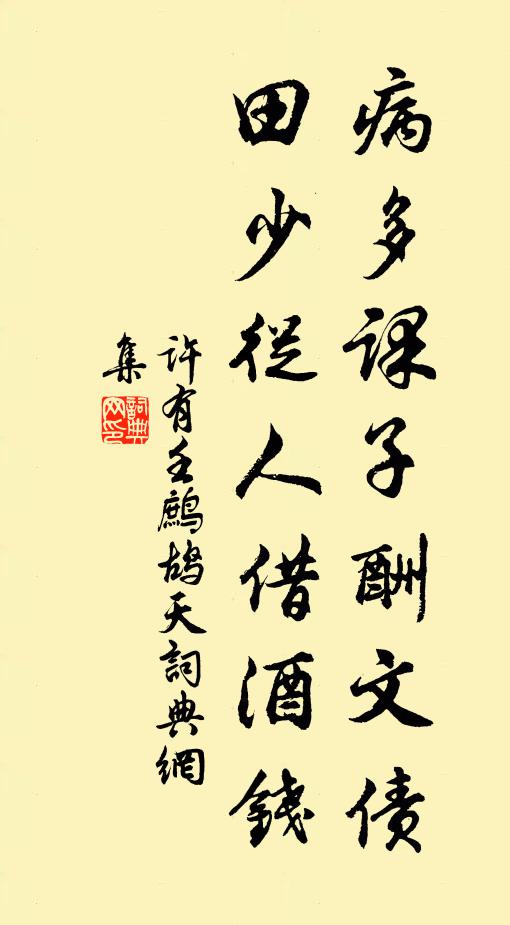 病多課子酬文债
田少從人借酒錢
許有壬鷓鴣天詞典網
集
詞典网印